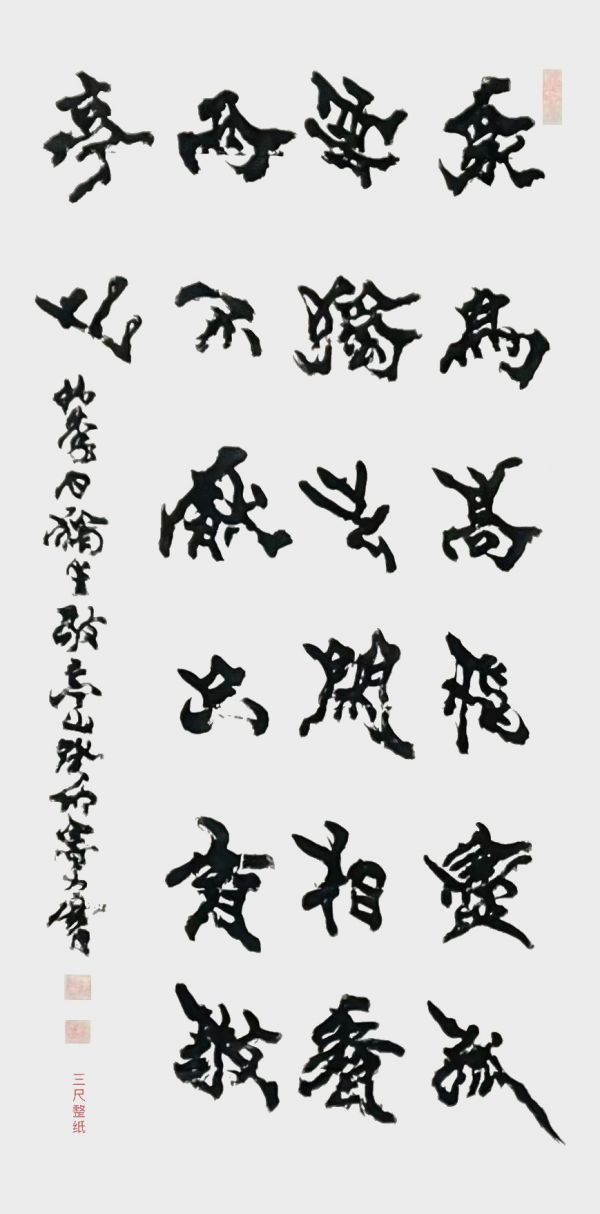 眾鳥高飛盡孤
雲獨去閑相看
兩不厭只有敬
亭山
李白獨坐敬亭山癸卯
三尺整纸